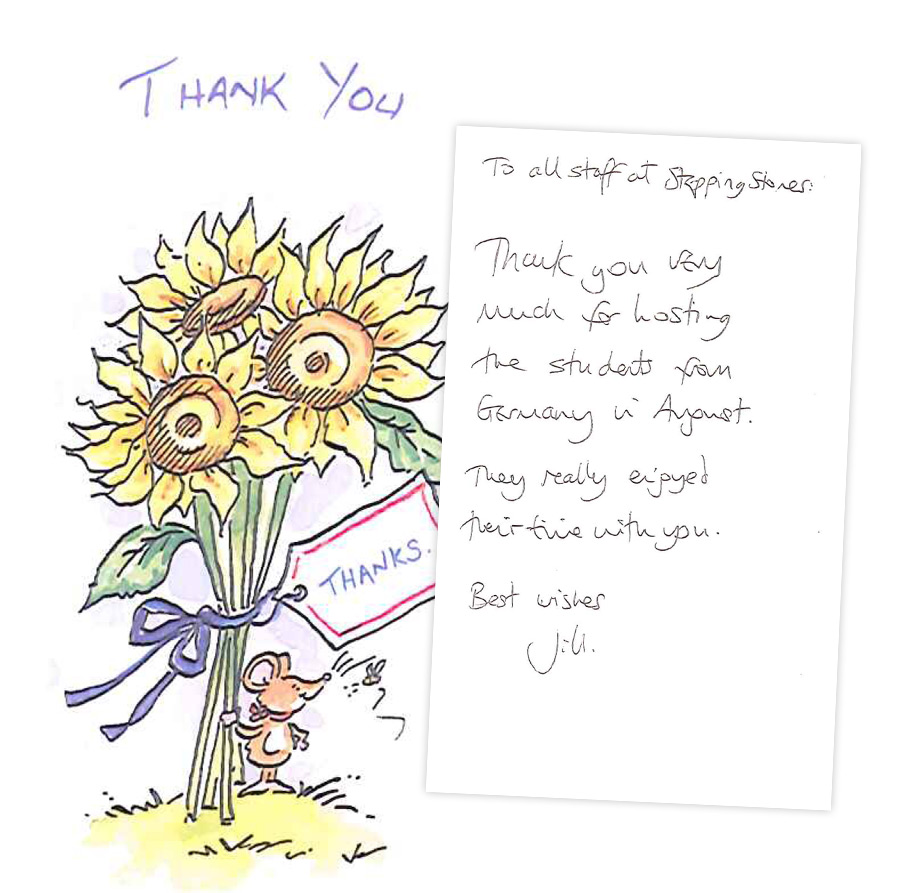 THANK YOU
THANKS.
To all staff at Stepping Stones:
Thank you very
much for hosting
the students from
Germany in August.
They really enjoyed
their time with you.
Best wishes
Jill.